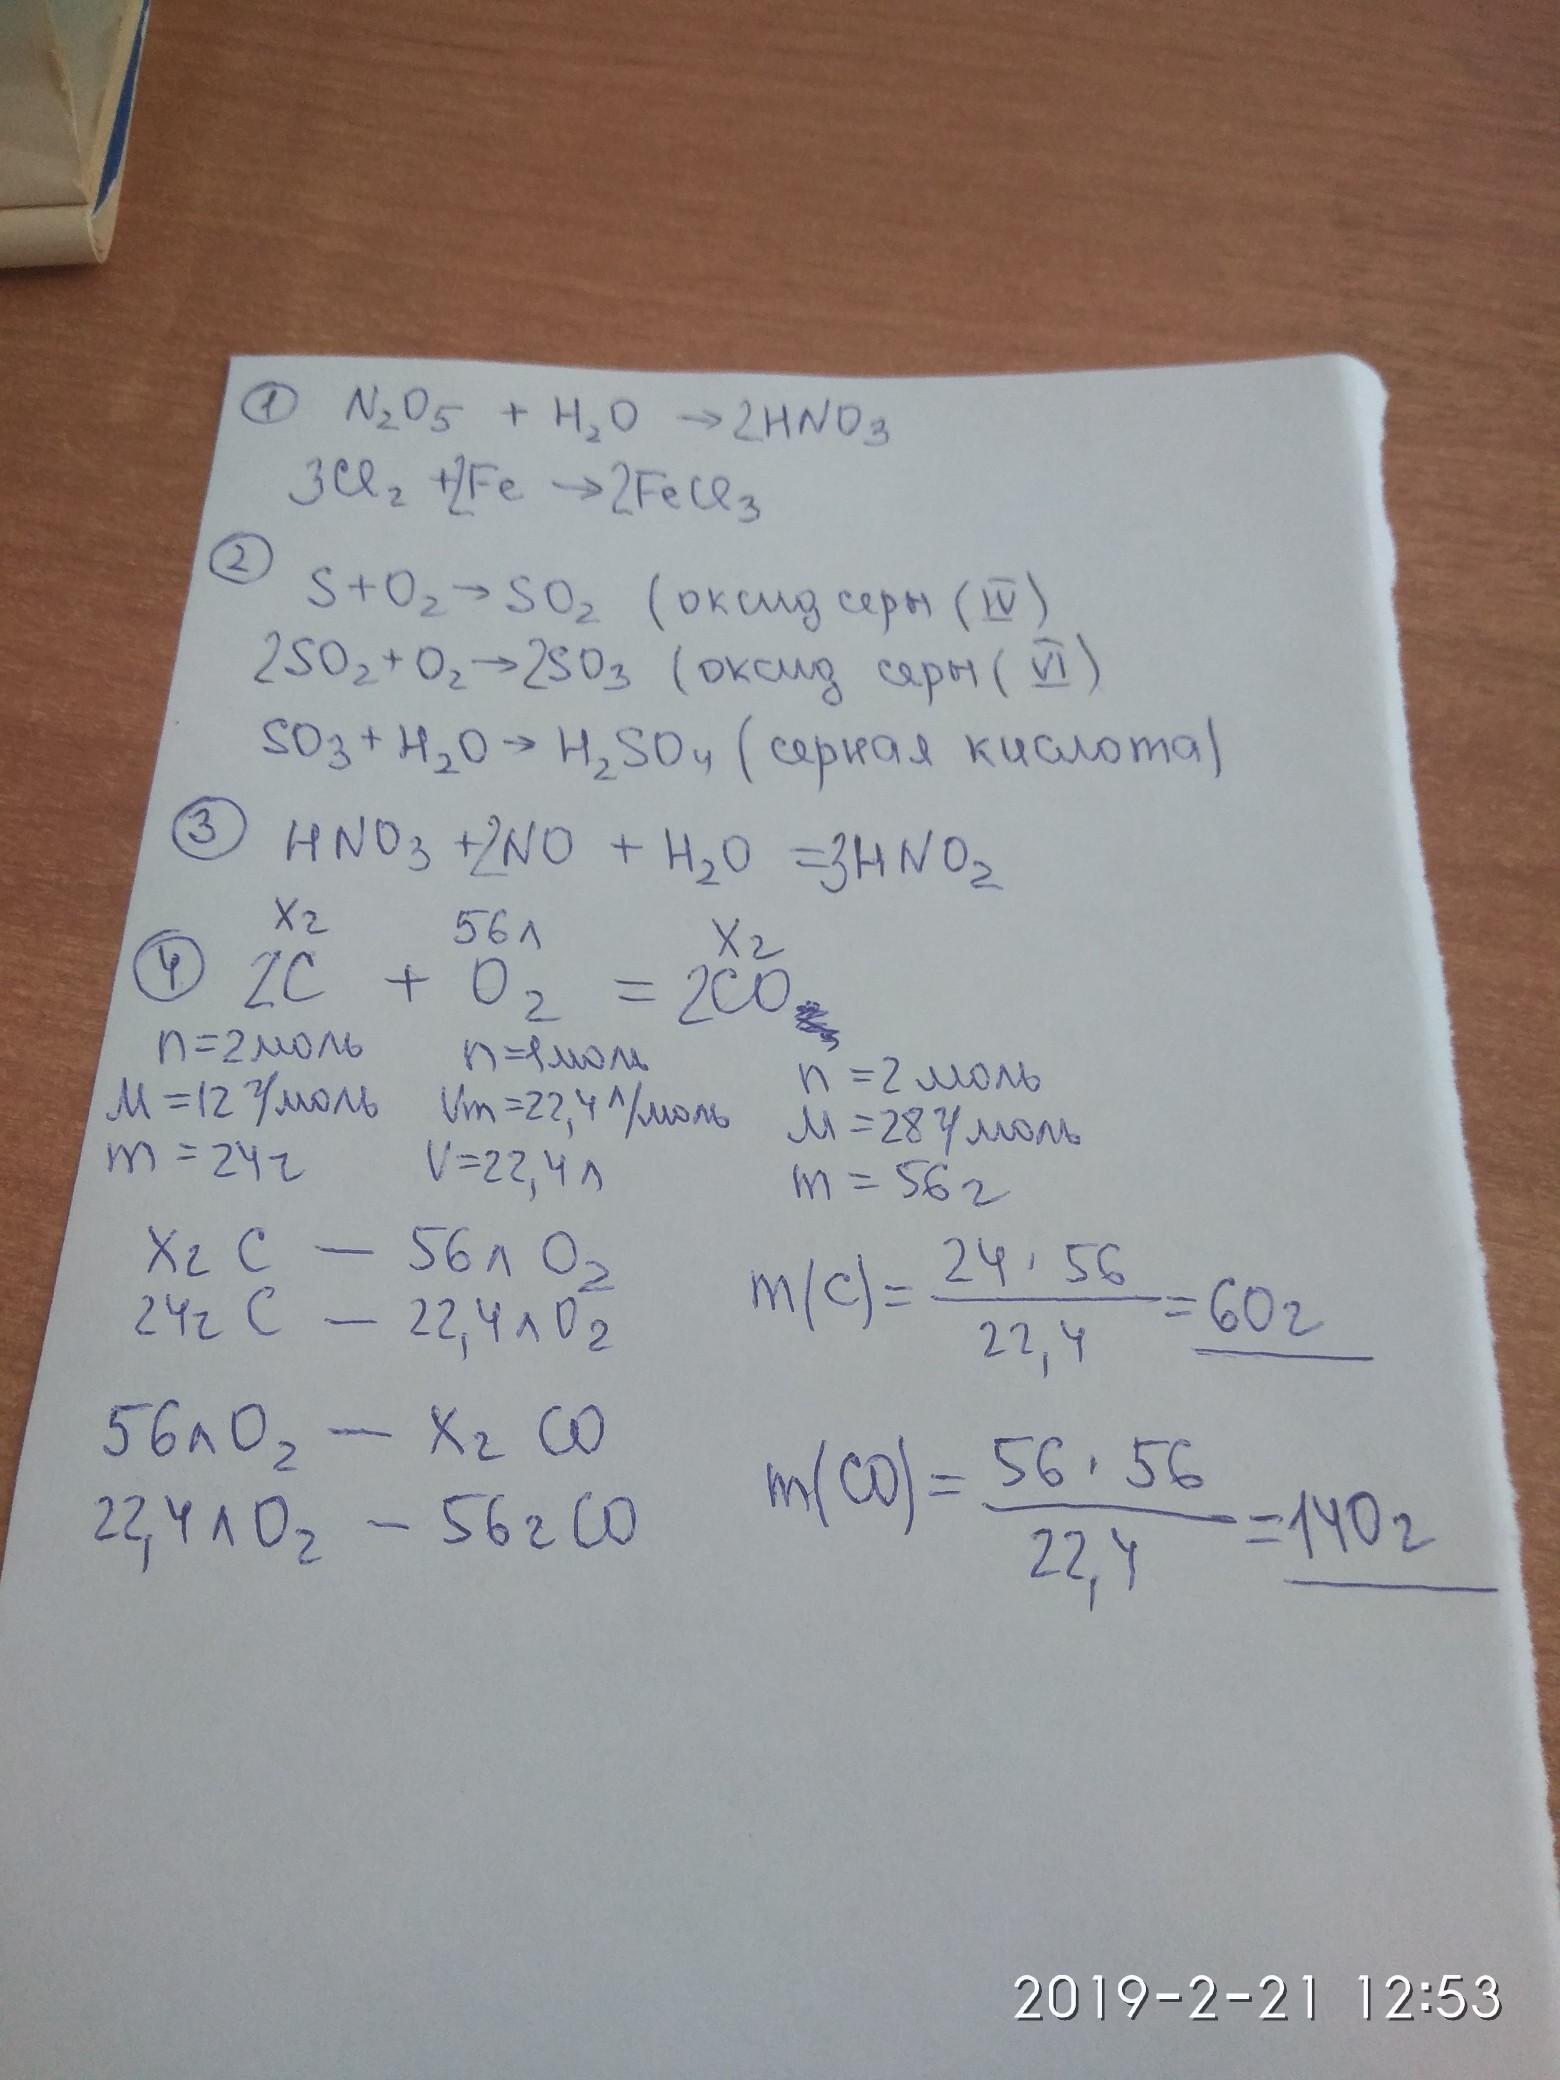 ① N₂O₅ + H₂O → 2HNO₃
3Cl₂ + 2Fe → 2FeCl₃
② S + O₂ → SO₂ (оксид серы (IV)
2SO₂ + O₂ → 2SO₃ (оксид серы (VI)
SO₃ + H₂O → H₂SO₄ (серная кислота)
③ HNO₃ + 2NO + H₂O = 3HNO₂
Xг 56л Xг
④ 2C + O₂ = 2CO
n = 2моль n = 1моль n = 2моль
M = 12 г/моль Vm = 22,4 л/моль M = 28 г/моль
m = 24г V = 22,4л m = 56г
Xг C — 56л O₂
24г C — 22,4л O₂
m(C) = 24 · 56 / 22,4 = 60г
56л O₂ — Xг CO
22,4л O₂ — 56г CO
m(CO) = 56 · 56 / 22,4 = 140г
2019-2-21 12:53